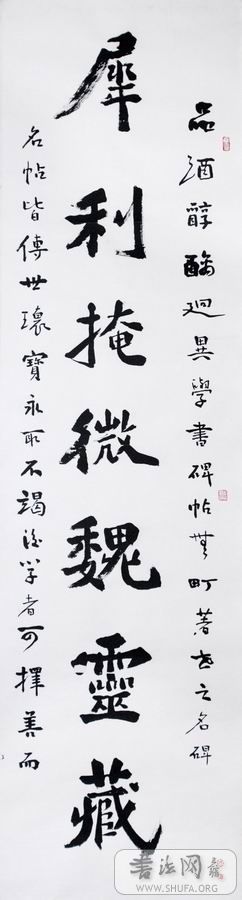 品酒醇醨迥異學書碑帖無町著世之名碑
犀利掩微魏靈藏
名帖皆傳世瓌寶永取不竭後學者可擇善而
書法网
WWW.SHUFA.ORG